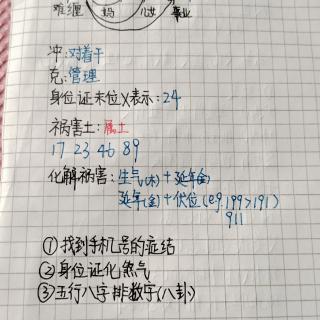 难缠 妈 儿女 事业
冲:对着干
克:管理
身位证末位X表示:24
祸害土:属土
17 23 46 89
化解祸害:生气(木)+延年(金)
延年(金)+伏位(eg.199>191)
911
①找到手机号的症结
②身位证化煞气
③五行八字排数字(八卦)